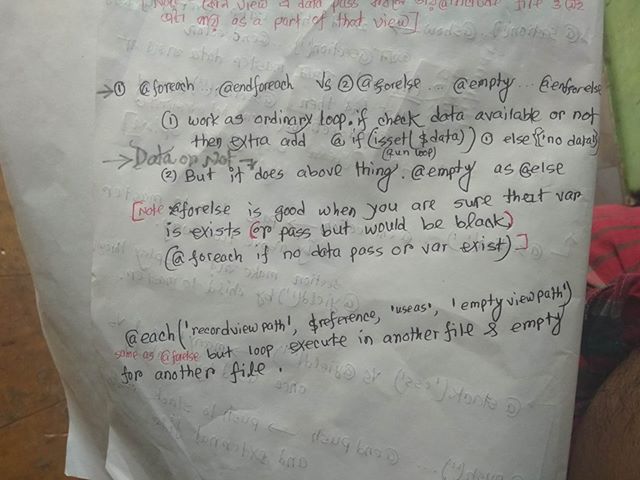 view এ data pass
as a part of that view]
→① @foreach... @endforeach Vs ② @forelse... @empty... @endforelse
(1) work as ordinary loop. if check data available or not
then extra add @if(isset($data)) ① else{{'no data'}}
(run loop)
→ Data or Not →
(2) But it does above thing. @empty as @else
[Note @forelse is good when you are sure that var
is exists (or pass but would be blank)
(@foreach if no data pass or var exist)]
@each('recordviewpath', $reference, 'useas', 'emptyviewpath')
same as @forelse but loop execute in another file & empty
for another file.